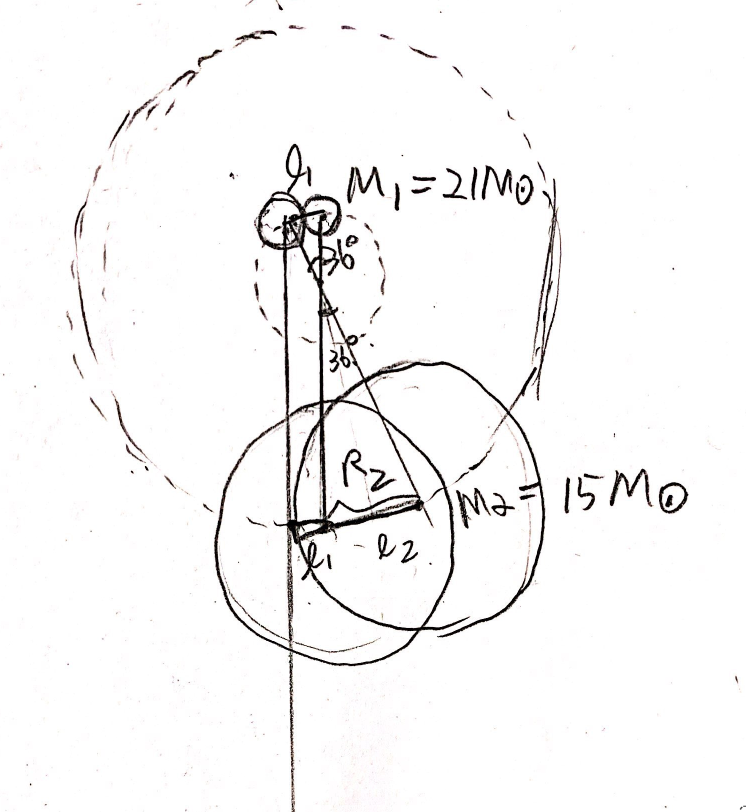 l₁
M₁=21M⊙
36°
36°
R₂
M₂=15M⊙
l₁
l₂